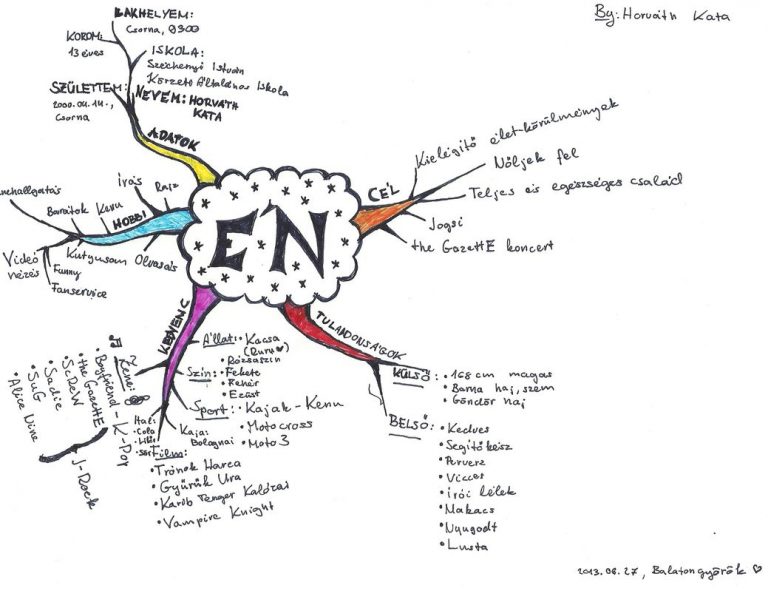 By: Horváth Kata
ÉN
ADATOK
LAKHELYEM:
Csorna, 9300
KOROM:
13 éves
ISKOLA:
Széchenyi István
Körzeti Általános Iskola
SZÜLETTEM:
2000.04.14.,
Csorna
NEVEM: HORVÁTH
KATA
HOBBI
Írás
Rajz
Kenu
Barátok
Kutyusom
Olvasás
Videó
nézés
Funny
Fanservice
CÉL
Kielégítő élet-körülmények
Nőljek fel
Teljes és egészséges család
Jogsi
the GazettE koncert
KEDVENC
Állat: • Kacsa
(Ruru♥)
Szín: • Rózsaszín
• Fekete
• Fehér
• Ezüst
Sport: • Kajak-Kenu
• Motocross
• Moto3
Kaja:
Bolognai
Ital:
• Cola
Film:
• Trónok Harca
• Gyűrűk Ura
• Karib Tenger Kalózai
• Vampire Knight
Zene:
• Boyfriend - K-Pop
• the GazettE
• ScReW
• Sadie
• SuG
• Alice Nine
J-Rock
TULAJDONSÁGOK
KÜLSŐ: • 168 cm magas
• Barna haj, szem
• Göndör haj
BELSŐ: • Kedves
• Segítőkész
• Perverz
• Vicces
• Írói lélek
• Makacs
• Nyugodt
• Lusta
2013.08.27, Balatongyörök ♡